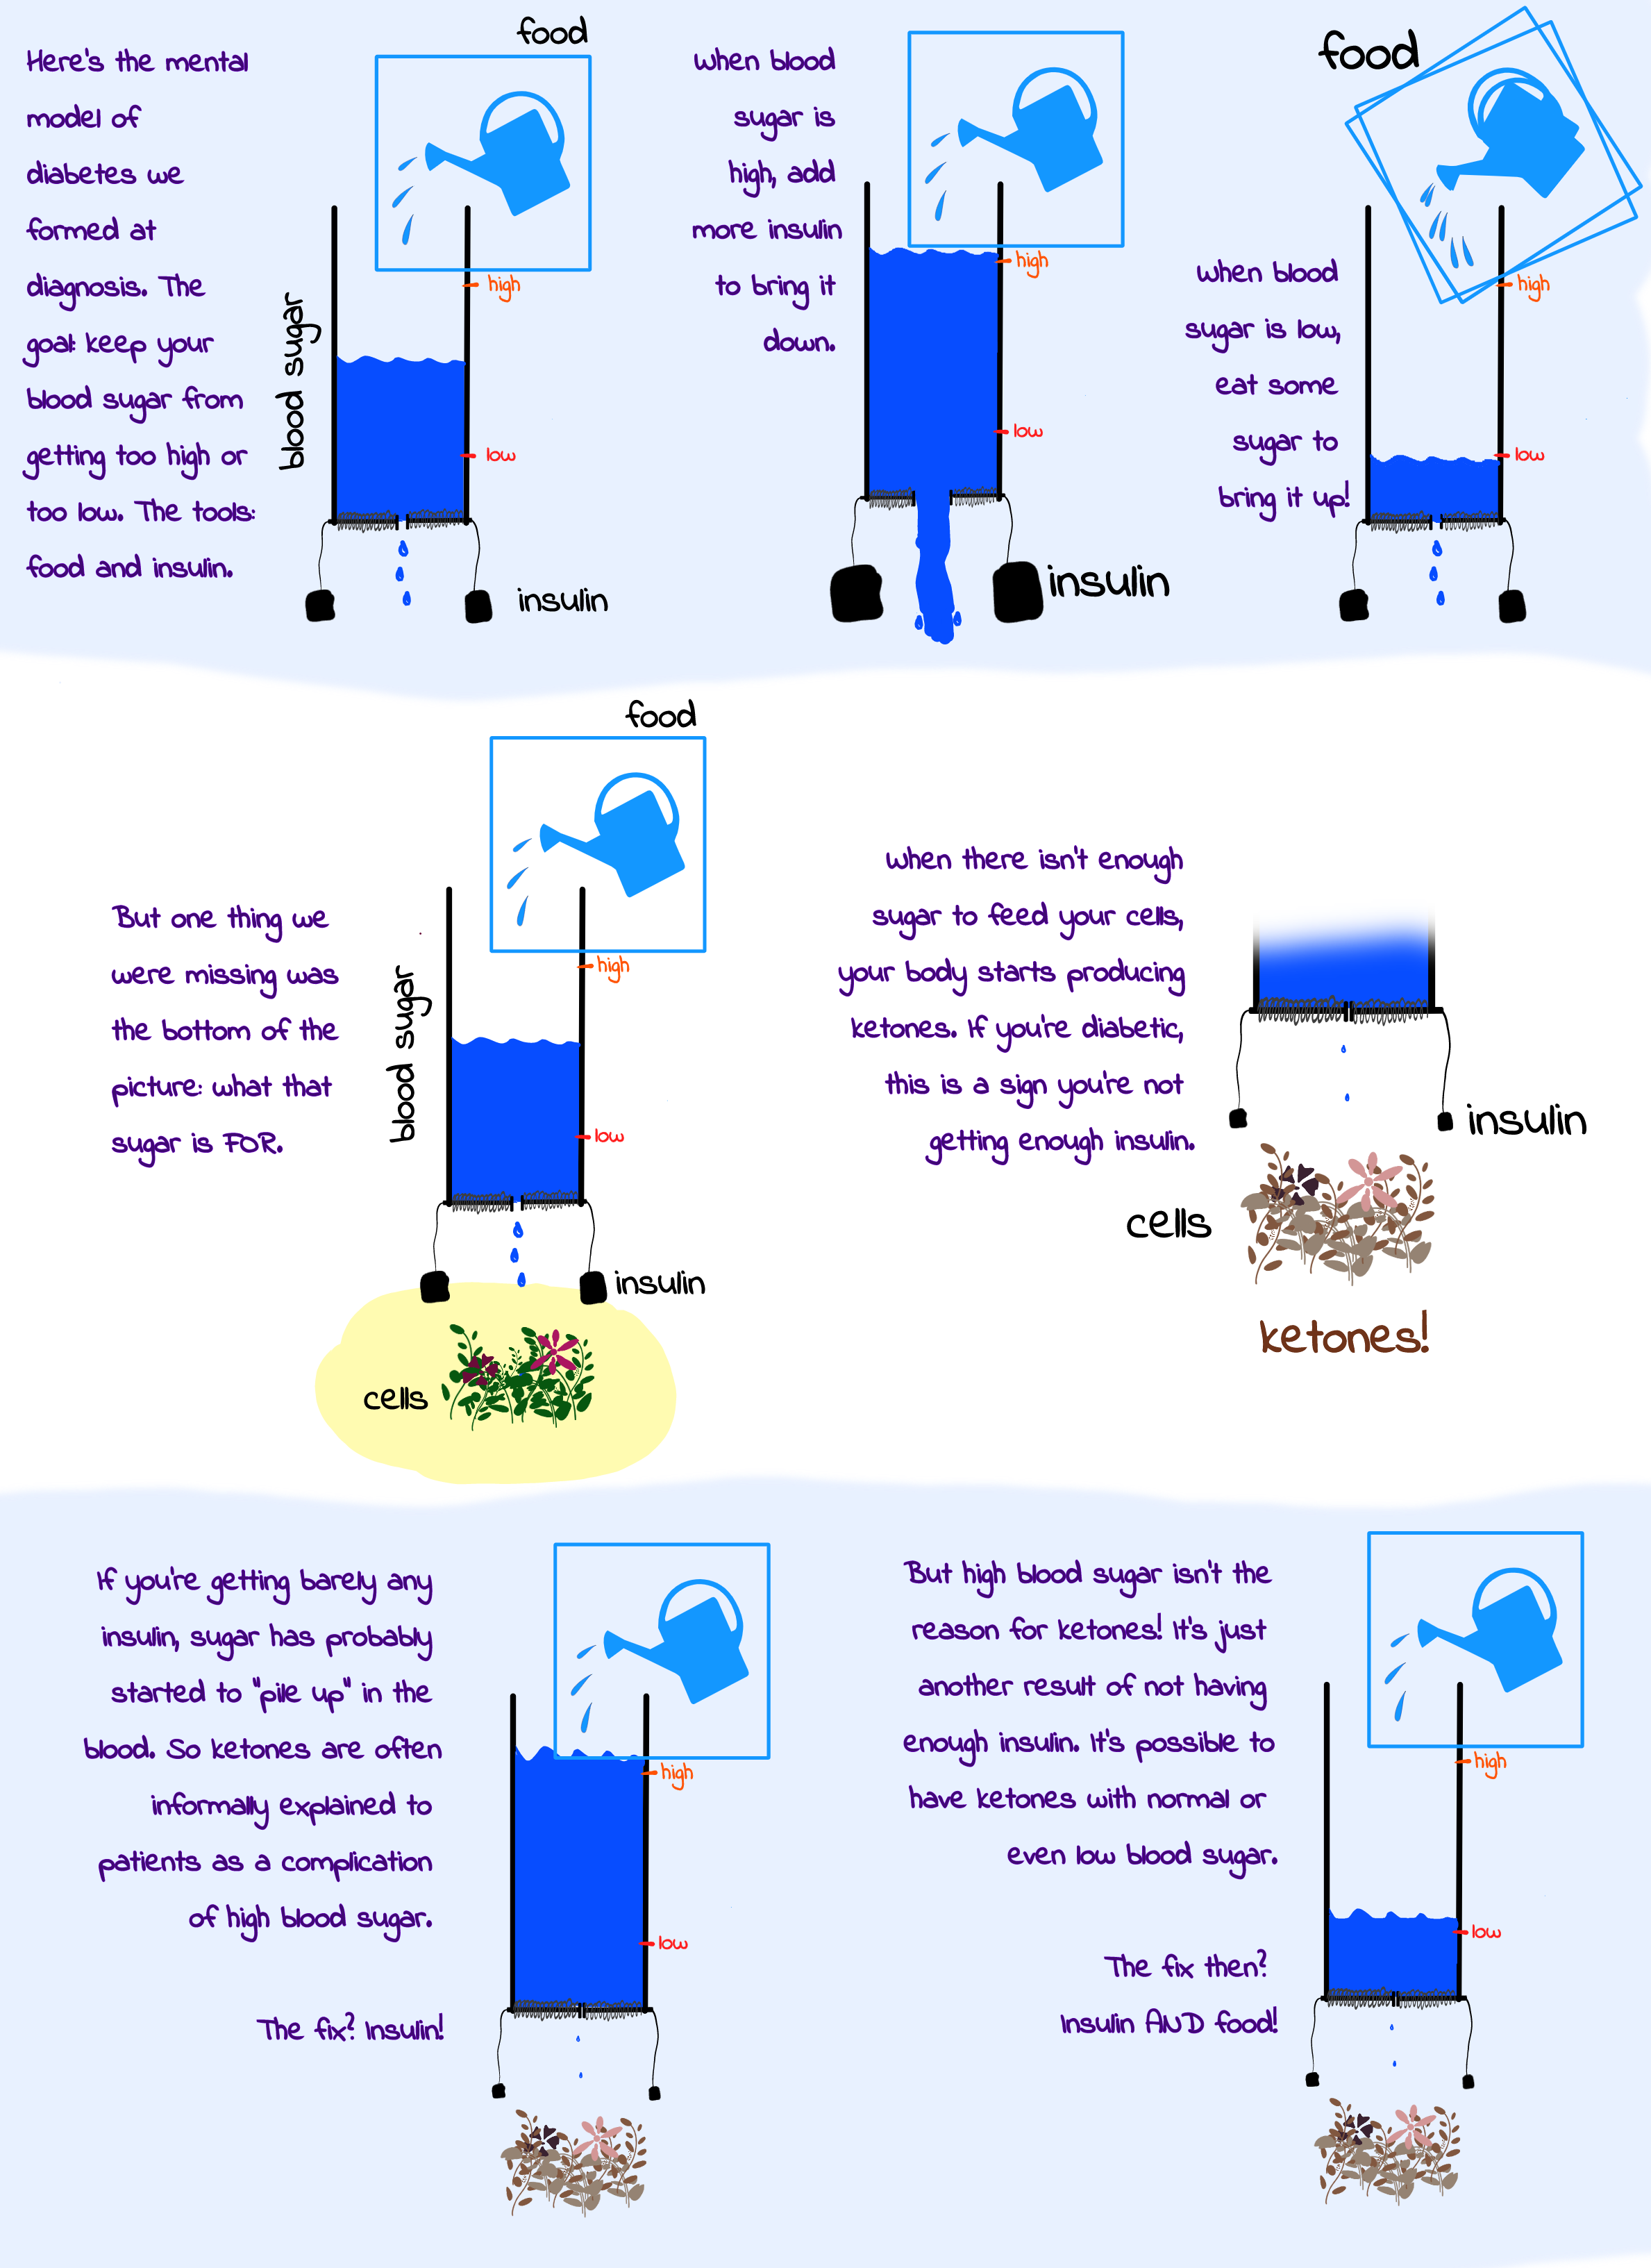 food
Here's the mental
model of
diabetes we
formed at
diagnosis. The
goal: keep your
blood sugar from
getting too high or
too low. The tools:
food and insulin.
blood sugar
high
low
insulin
When blood
sugar is
high, add
more insulin
to bring it
down.
high
low
insulin
food
When blood
sugar is low,
eat some
sugar to
bring it up!
high
low
food
But one thing we
were missing was
the bottom of the
picture: what that
sugar is FOR.
blood sugar
high
low
insulin
cells
When there isn't enough
sugar to feed your cells,
your body starts producing
ketones. If you're diabetic,
this is a sign you're not
getting enough insulin.
insulin
cells
ketones!
If you're getting barely any
insulin, sugar has probably
started to "pile up" in the
blood. So ketones are often
informally explained to
patients as a complication
of high blood sugar.
The fix? Insulin!
high
low
But high blood sugar isn't the
reason for ketones! It's just
another result of not having
enough insulin. It's possible to
have ketones with normal or
even low blood sugar.
The fix then?
Insulin AND food!
high
low